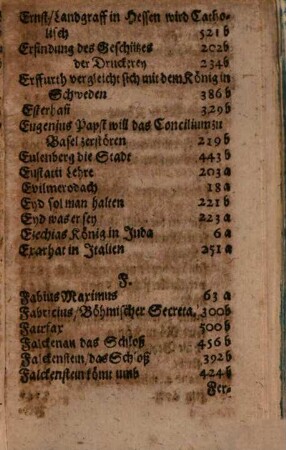 Ernst/Landgraff in Hessen wird Catho-
lisch 521 b
Erfindung des Geschützes 202 b
der Druckerey 234 b
Erffurth vergleicht sich mit dem König in
Schweden 386 b
Esterhasi 329 b
Eugenius Papst will das Concilium zu
Basel zerstören 219 b
Eulenberg die Stadt 443 b
Eustatii Lehre 203 a
Evilmerodach 18 a
Eyd sol man halten 221 b
Eyd was er sey 223 a
Ezechias König in Juda 6 a
Exarhat in Italien 251 a
F.
Fabius Maximus 63 a
Fabricius/Böhmischer Secreta. 300 b
Fairfax 500 b
Falckenau das Schloß 456 b
Falckenstein/das Schloß 392 b
Falckenstein kömt umb 424 b
Fer-